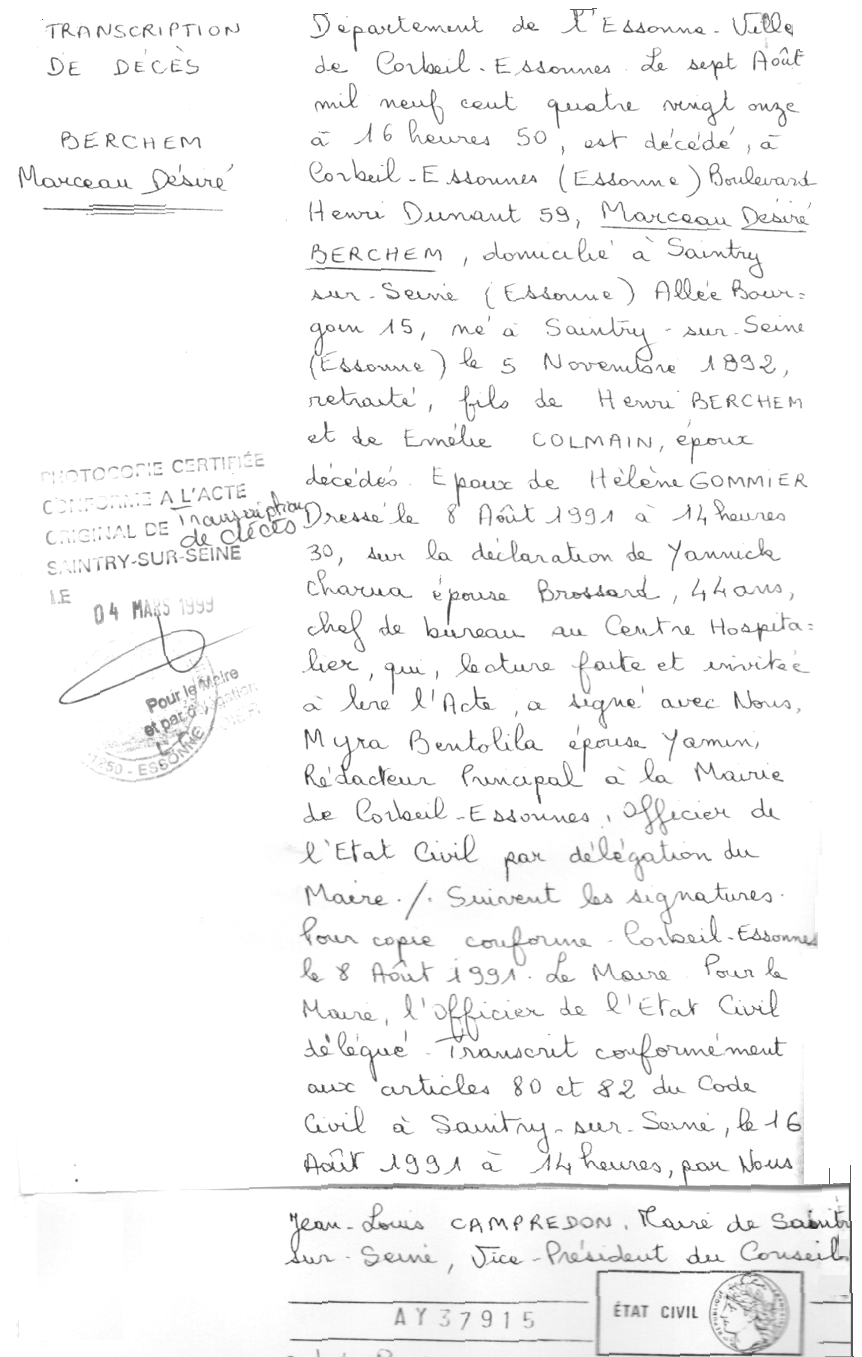 TRANSCRIPTION
DE DÉCÈS
BERCHEM
Marceau Désiré
Département de l'Essonne - Ville
de Corbeil-Essonnes. Le sept Août
mil neuf cent quatre vingt onze
à 16 heures 50, est décédé, à
Corbeil-Essonnes (Essonne) Boulevard
Henri Dunant 59, Marceau Désiré
BERCHEM, domicilié à Saintry
sur-Seine (Essonne) Allée Bour=
goin 15, né à Saintry-sur-Seine
(Essonne) le 5 Novembre 1892,
retraité, fils de Henri BERCHEM
et de Emélie COLMAIN, époux
décédés. Epoux de Hélène GOMMIER
Dressé le 8 Août 1991 à 14 heures
30, sur la déclaration de Yannick
Charua épouse Brossard, 44 ans,
chef de bureau au Centre Hospita=
lier, qui, lecture faite et invitée
à lire l'Acte, a signé avec Nous,
Myra Bentolila épouse Yamin,
Rédacteur Principal à la Mairie
de Corbeil-Essonnes, Officier de
l'Etat Civil par délégation du
Maire ./. Suivent les signatures.
Pour copie conforme - Corbeil-Essonnes
le 8 Août 1991. Le Maire. Pour le
Maire, l'Officier de l'Etat Civil
délégué - Transcrit conformément
aux articles 80 et 82 du Code
Civil à Saintry-sur-Seine, le 16
Août 1991 à 14 heures, par Nous
Jean-Louis CAMPREDON, Maire de Saintry
sur-Seine, Vice-Président du Conseil
PHOTOCOPIE CERTIFIÉE
CONFORME A L'ACTE
ORIGINAL DE Transcription
de décès
SAINTRY-SUR-SEINE
LE
04 MARS 1999
Pour le Maire
et par délégation
ESSONNE
AY37915
ÉTAT CIVIL